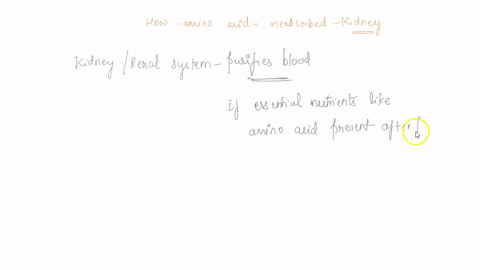 How - amino acid - reabsorbed - Kidney
Kidney / Renal system - purifies blood
If essential nutrients like
amino acid present after